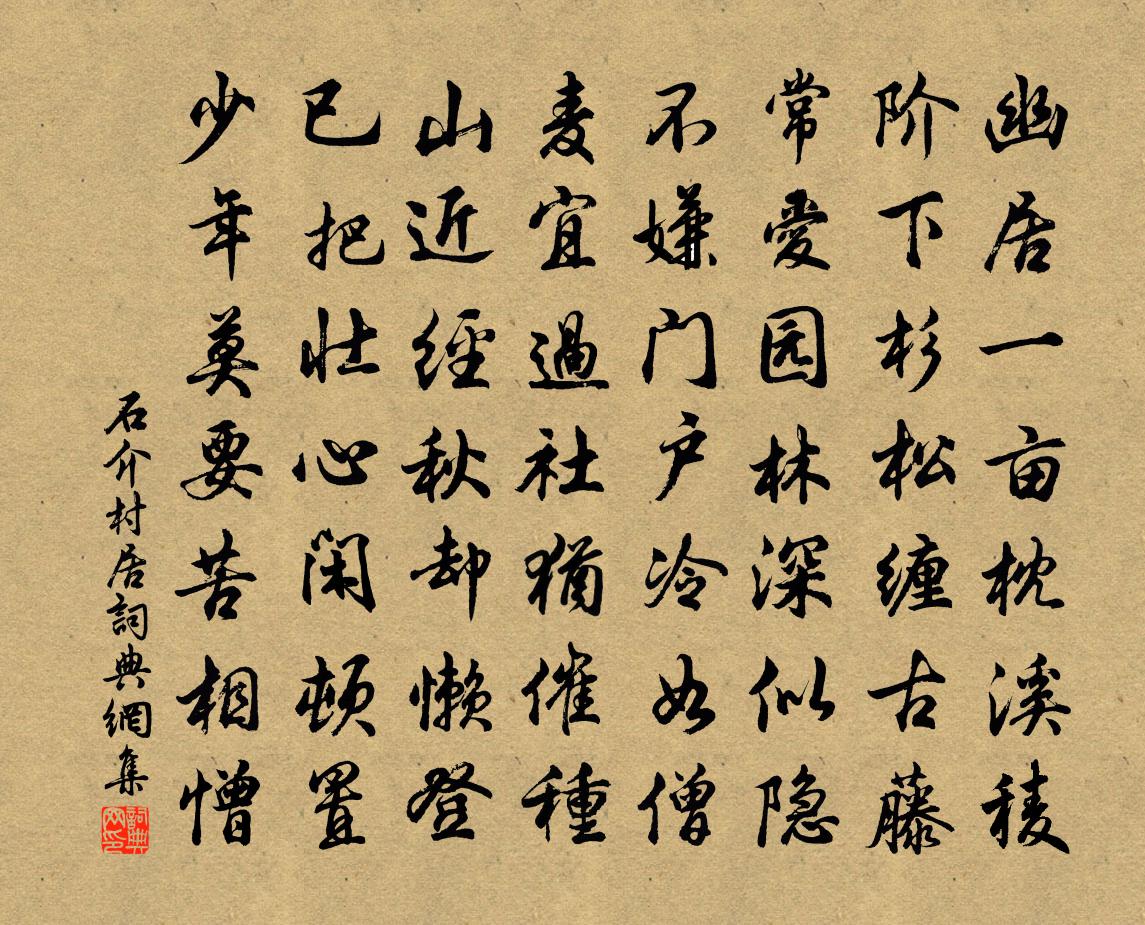 幽居一亩枕溪稜
阶下杉松缠古藤
常愛园林深似隐
不嫌门户冷如僧
麦宜過社犹催種
山近經秋却懒登
已把壮心闲顿置
少年莫要苦相憎
石介村居詞典網集
詞典網印